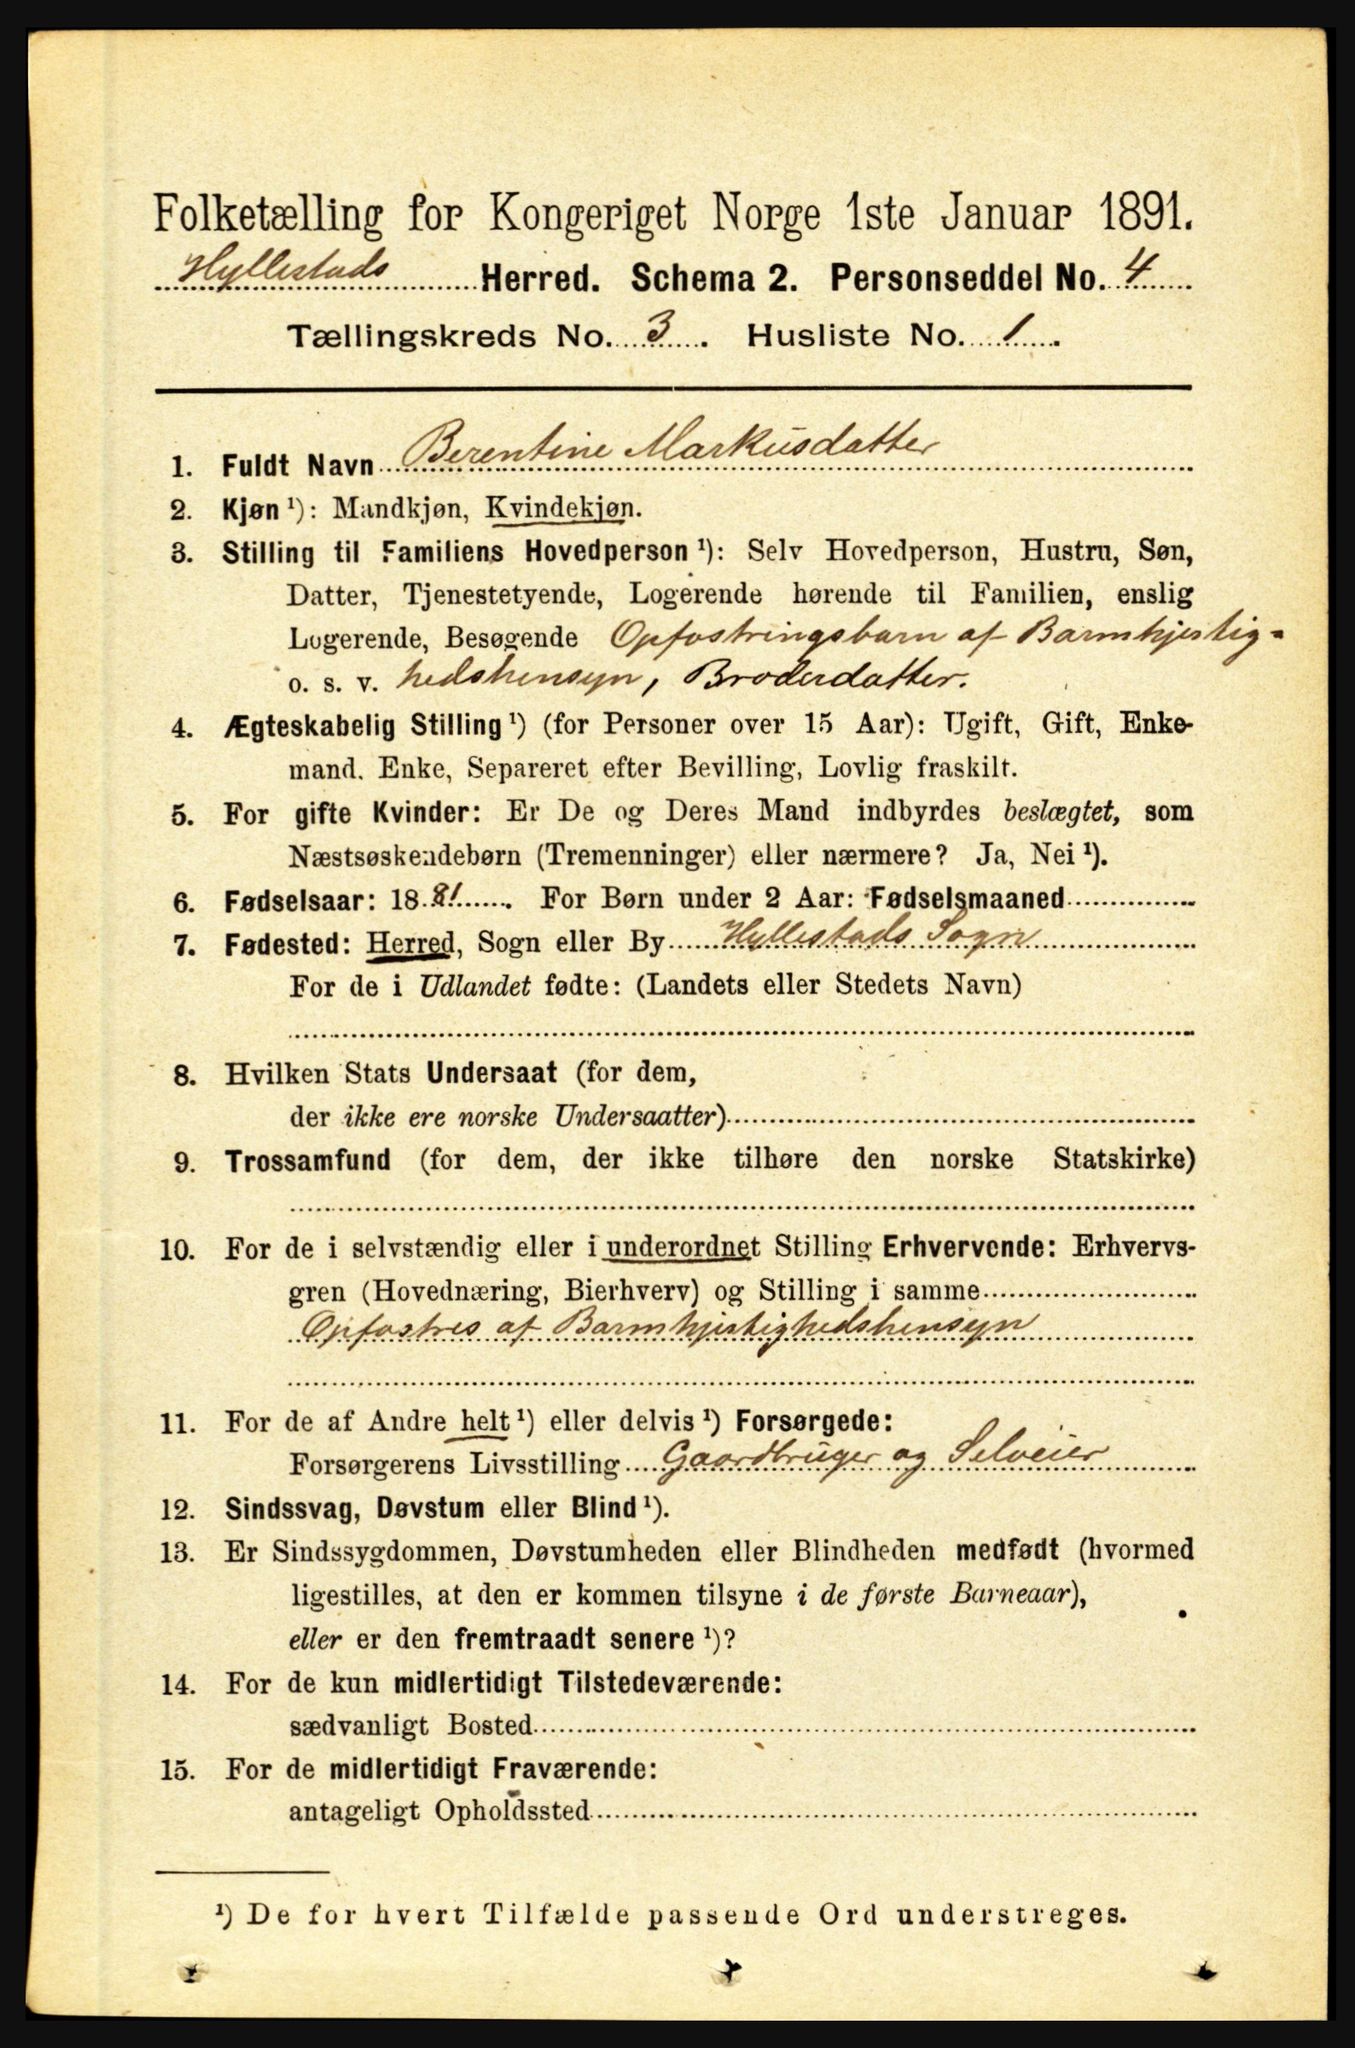 Folketælling for Kongeriget Norge 1ste Januar 1891.
Hyllestads Herred. Schema 2. Personseddel No. 4
Tællingskreds No. 3. Husliste No. 1.
1. Fuldt Navn Berentine Markusdatter
2. Kjøn ¹): Mandkjøn, Kvindekjøn.
3. Stilling til Familiens Hovedperson ¹): Selv Hovedperson, Hustru, Søn,
Datter, Tjenestetyende, Logerende hørende til Familien, enslig
Logerende, Besøgende Opfostringsbarn af Barmhjertig-
o. s. v. hedshensyn, Broderdatter.
4. Ægteskabelig Stilling ¹) (for Personer over 15 Aar): Ugift, Gift, Enke-
mand, Enke, Separeret efter Bevilling, Lovlig fraskilt.
5. For gifte Kvinder: Er De og Deres Mand indbyrdes beslægtet, som
Næstsøskendebørn (Tremenninger) eller nærmere? Ja, Nei ¹).
6. Fødselsaar: 1881. For Børn under 2 Aar: Fødselsmaaned
7. Fødested: Herred, Sogn eller By Hyllestads Sogn
For de i Udlandet fødte: (Landets eller Stedets Navn)
8. Hvilken Stats Undersaat (for dem,
der ikke ere norske Undersaatter)
9. Trossamfund (for dem, der ikke tilhøre den norske Statskirke)
10. For de i selvstændig eller i underordnet Stilling Erhvervende: Erhvervs-
gren (Hovednæring, Bierhverv) og Stilling i samme
Opfostres af Barmhjertighedshensyn
11. For de af Andre helt ¹) eller delvis ¹) Forsørgede:
Forsørgerens Livsstilling Gaardbruger og Selveier
12. Sindssvag, Døvstum eller Blind ¹).
13. Er Sindssygdommen, Døvstumheden eller Blindheden medfødt (hvormed
ligestilles, at den er kommen tilsyne i de første Barneaar),
eller er den fremtraadt senere ¹)?
14. For de kun midlertidigt Tilstedeværende:
sædvanligt Bosted
15. For de midlertidigt Fraværende:
antageligt Opholdssted
¹) De for hvert Tilfælde passende Ord understreges.